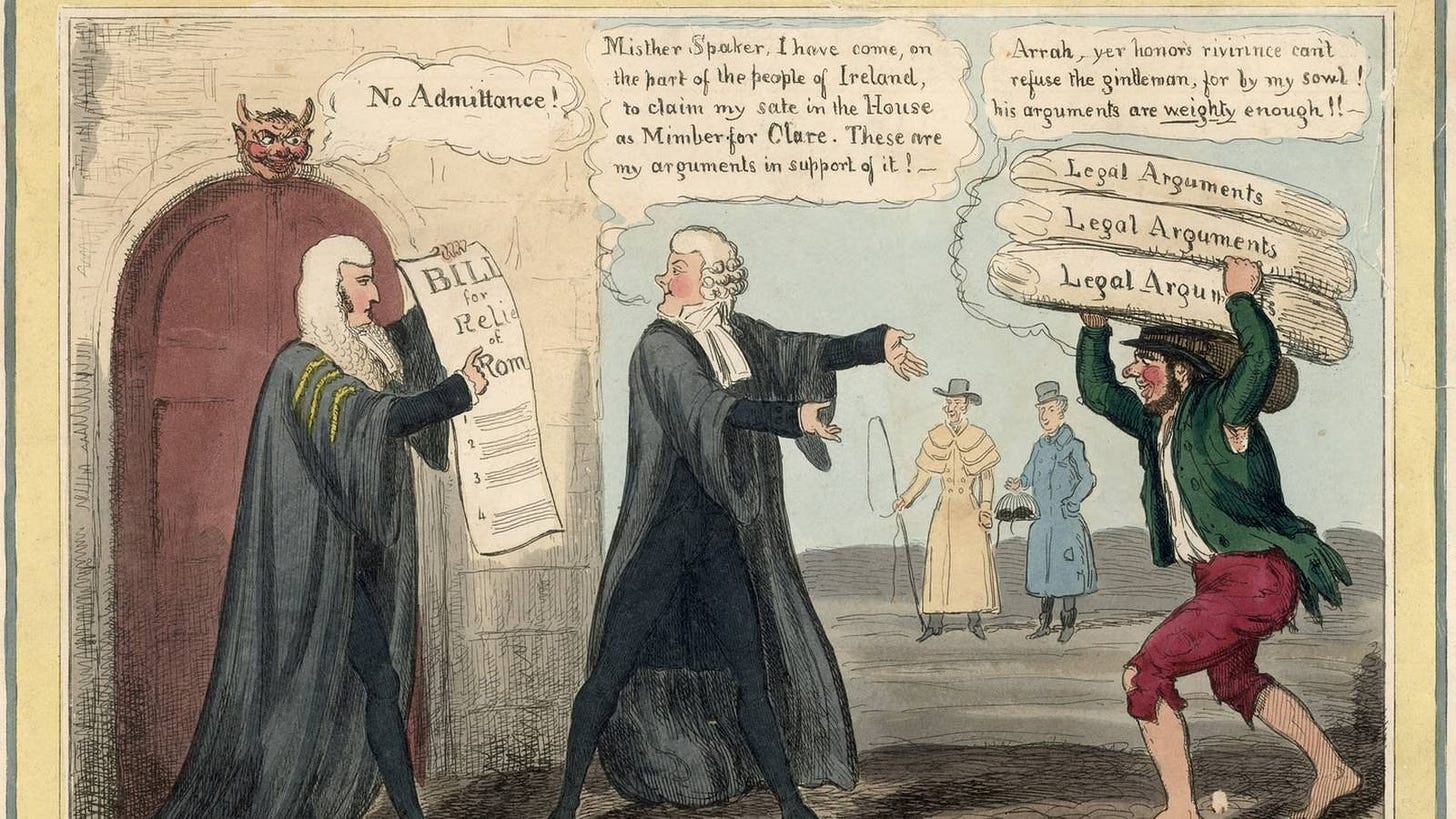 No Admittance!
Misther Spaker, I have come, on
the part of the people of Ireland,
to claim my sate in the House
as Mimber for Clare. These are
my arguments in support of it! —
Arrah, yer honors rivirince can't
refuse the gintleman, for by my sowl!
his arguments are weighty enough!! —
Legal Arguments
Legal Arguments
Legal Argum
BILL
for
Relie
of
Rom
1
2
3
4